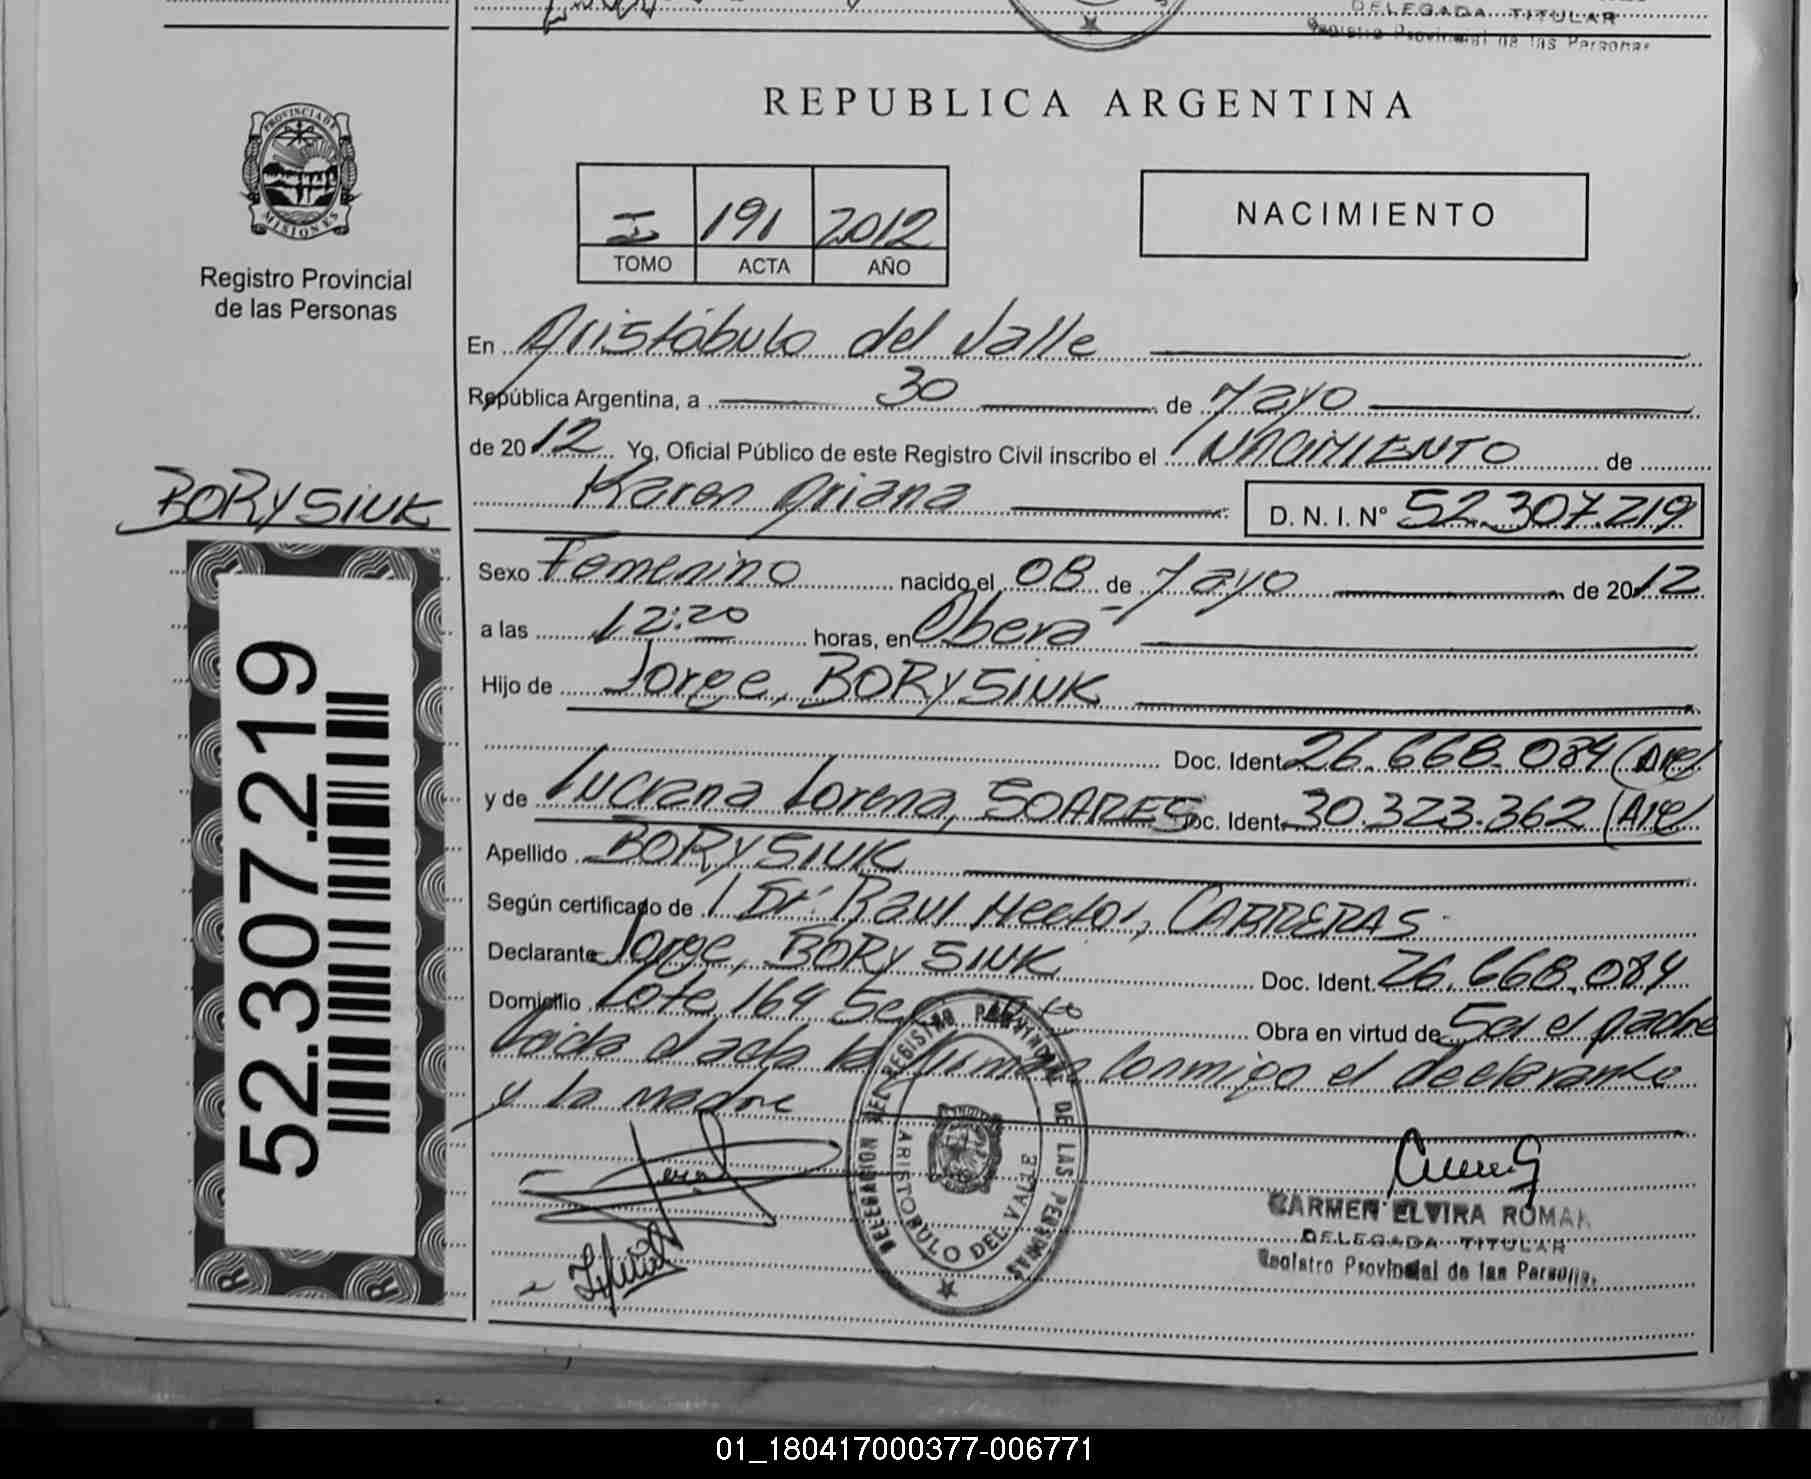 DELEGADA TITULAR
Registro Provincial de las Personas
PROVINCIA DE MISIONES
Registro Provincial
de las Personas
REPUBLICA ARGENTINA
I 191 2012
TOMO ACTA AÑO
NACIMIENTO
En Aristóbulo del Valle
República Argentina, a 30 de Mayo
de 2012 Yo, Oficial Público de este Registro Civil inscribo el NACIMIENTO de
BORYSIUK
Karen Ariana D. N. I. Nº 52.307.219
Sexo Femenino nacido el 08 de Mayo de 2012
a las 12:20 horas, en Oberá
Hijo de Jorge, BORYSIUK
Doc. Ident. 26.668.084 (Arg)
y de Luciana Lorena, SOARES Doc. Ident. 30.323.362 (Arg)
Apellido BORYSIUK
Según certificado de Dr. Raul Hector, CARRERAS
Declarante Jorge, BORYSIUK Doc. Ident. 26.668.084
Domicilio Lote 164 Obra en virtud de Ser el padre
Leida el acta la firman conmigo el declarante
y la madre
52.307.219
DELEGACION DEL REGISTRO PROVINCIAL DE LAS PERSONAS
ARISTOBULO DEL VALLE
CARMEN ELVIRA ROMAN
DELEGADA TITULAR
Registro Provincial de las Personas
01_180417000377-006771